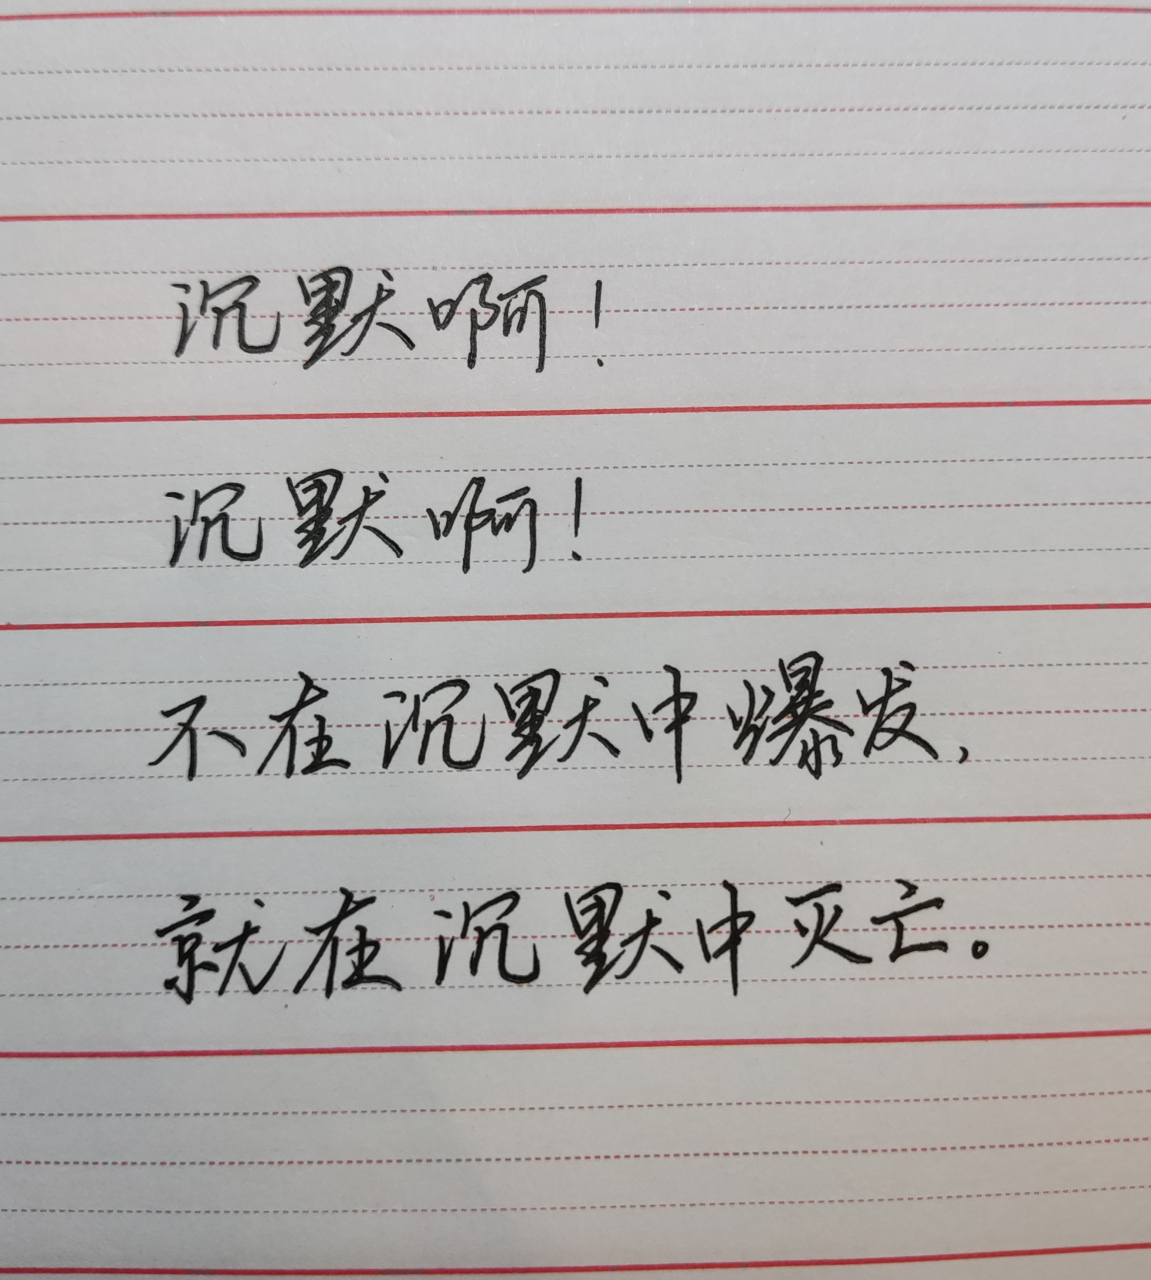 沉默啊！
沉默啊！
不在沉默中爆发，
就在沉默中灭亡。